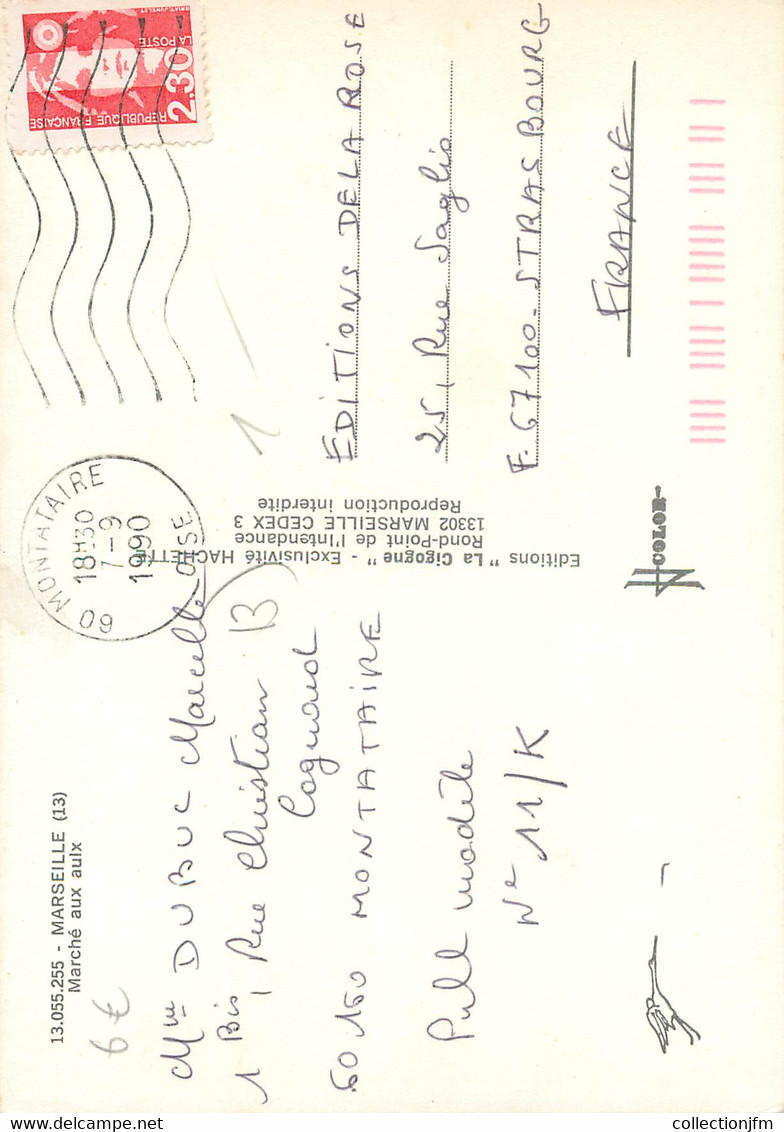 13.055.255 - MARSEILLE (13)
Marché aux aulx
6 €
Mme DUBUC Marcelle
1 Bis, Rue Christian
Cognard
60 160 MONTATAIRE
Pull modèle
N° 11/K
60 MONTATAIRE
18H30
7-9
1990
OISE
B
1
Editions " La Cigogne " - Exclusivité HACHETTE
Rond-Point de l'Intendance
13302 MARSEILLE CEDEX 3
Reproduction interdite
COLOR
REPUBLIQUE FRANÇAISE
2.30
LA POSTE
BRIAT-JUMELET
EDITIONS DELAROSE
25, Rue Saglio
F. 67100-STRASBOURG
FRANCE
collectionjfm
www.delcampe.net